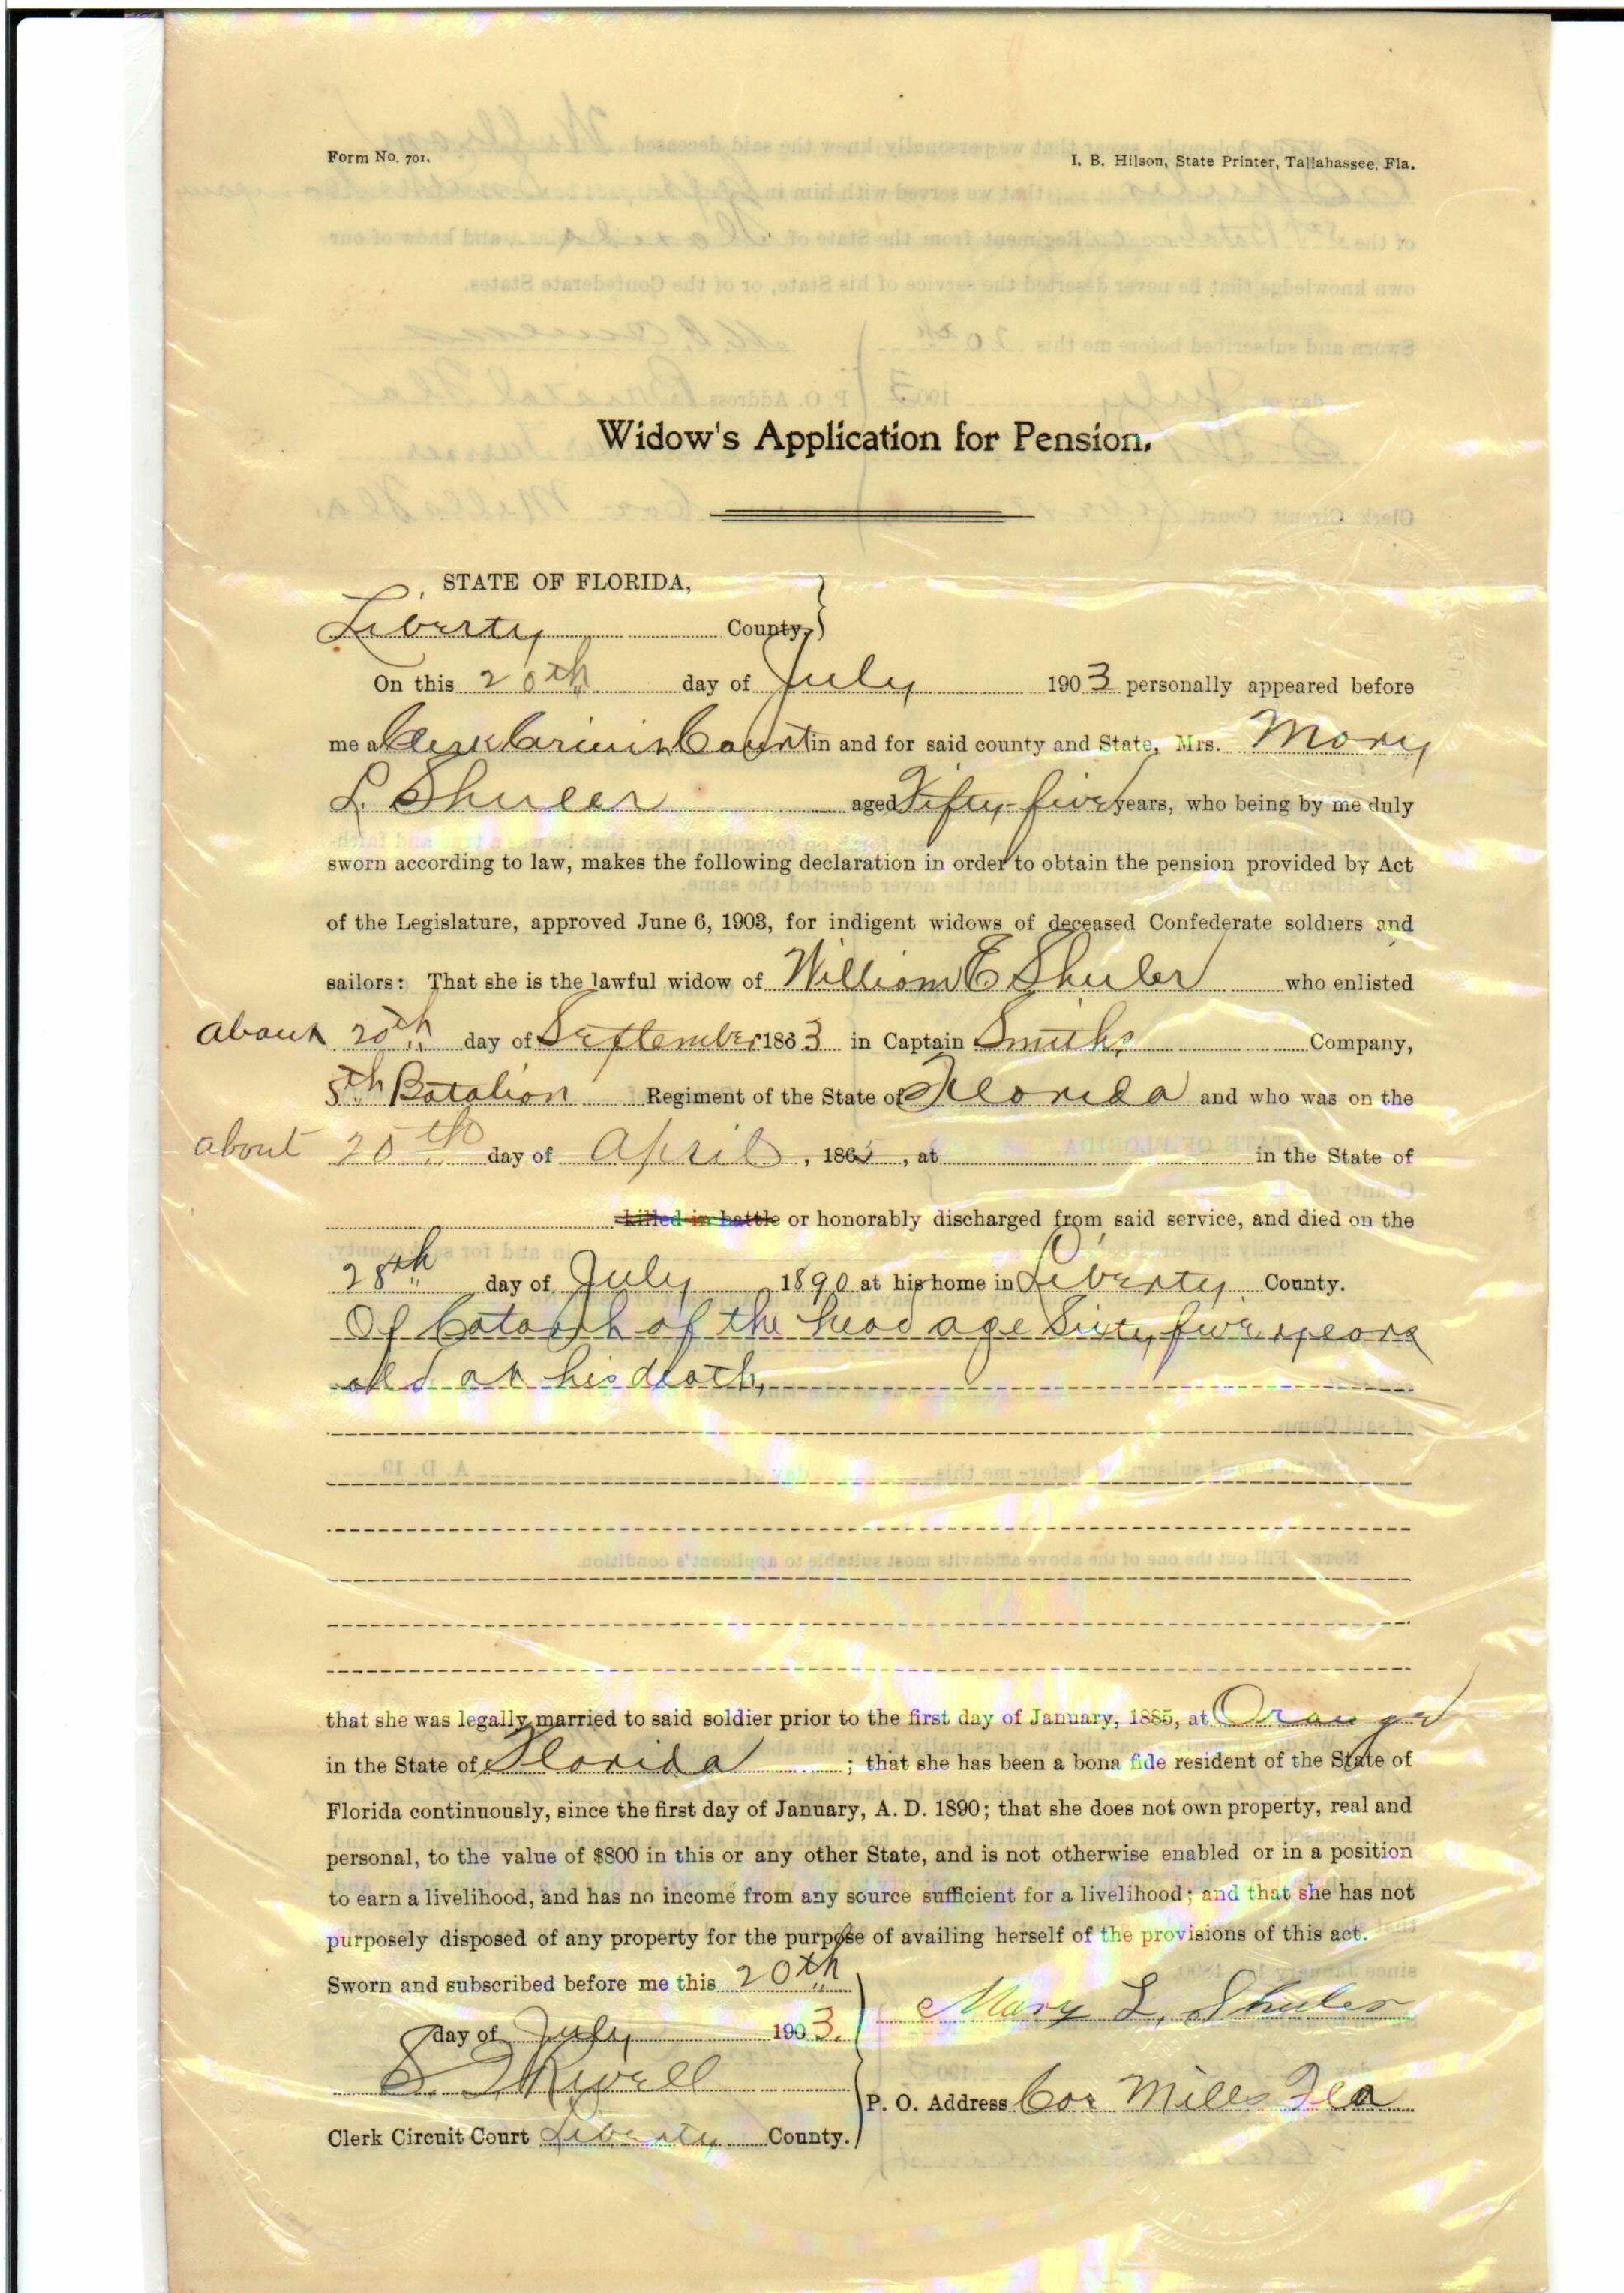 Form No. 701.
I. B. Hilson, State Printer, Tallahassee, Fla.
Widow's Application for Pension.
STATE OF FLORIDA,
Liberty County,
On this 20th day of July 1903 personally appeared before
me a Clerk Circuit Court in and for said county and State, Mrs. Mary
L. Shuler aged Fifty-five years, who being by me duly
sworn according to law, makes the following declaration in order to obtain the pension provided by Act
of the Legislature, approved June 6, 1903, for indigent widows of deceased Confederate soldiers and
sailors: That she is the lawful widow of William E Shuler who enlisted
about 20th day of September 1863 in Captain Smiths Company,
5th Batalion Regiment of the State of Florida and who was on the
about 20th day of April, 1865, at in the State of
killed in battle or honorably discharged from said service, and died on the
28th day of July 1890 at his home in Liberty County.
Of Catarrh of the head age Sixty five years
old at his death,
that she was legally married to said soldier prior to the first day of January, 1885, at Orange
in the State of Florida ; that she has been a bona fide resident of the State of
Florida continuously, since the first day of January, A. D. 1890; that she does not own property, real and
personal, to the value of $800 in this or any other State, and is not otherwise enabled or in a position
to earn a livelihood, and has no income from any source sufficient for a livelihood; and that she has not
purposely disposed of any property for the purpose of availing herself of the provisions of this act.
Sworn and subscribed before me this 20th
day of July 1903.
Mary L. Shuler
P. O. Address Cox Mills Fla
Clerk Circuit Court Liberty County.